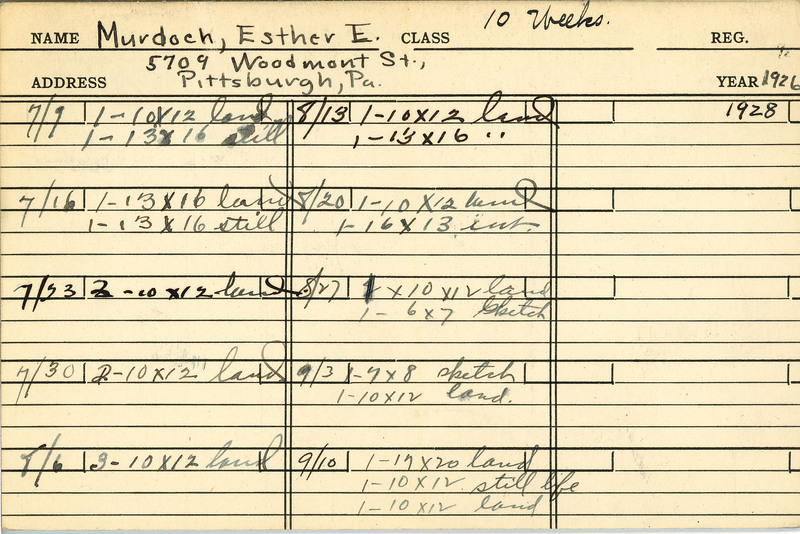 NAME Murdoch, Esther E. CLASS 10 Weeks. REG.
5709 Woodmont St.,
ADDRESS Pittsburgh, Pa. YEAR 1926
1928
7/9 1-10x12 land
1-13x16 still
7/16 1-13x16 land
1-13x16 still
7/23 2-10x12 land
7/30 2-10x12 land
8/6 3-10x12 land
8/13 1-10x12 land
1-13x16 "
8/20 1-10x12 land
1-16x13 int.
8/27 1x10x12 land
1-6x7 Sketch
9/3 1-7x8 sketch
1-10x12 land.
9/10 1-17x20 land
1-10x12 still life
1-10x12 land